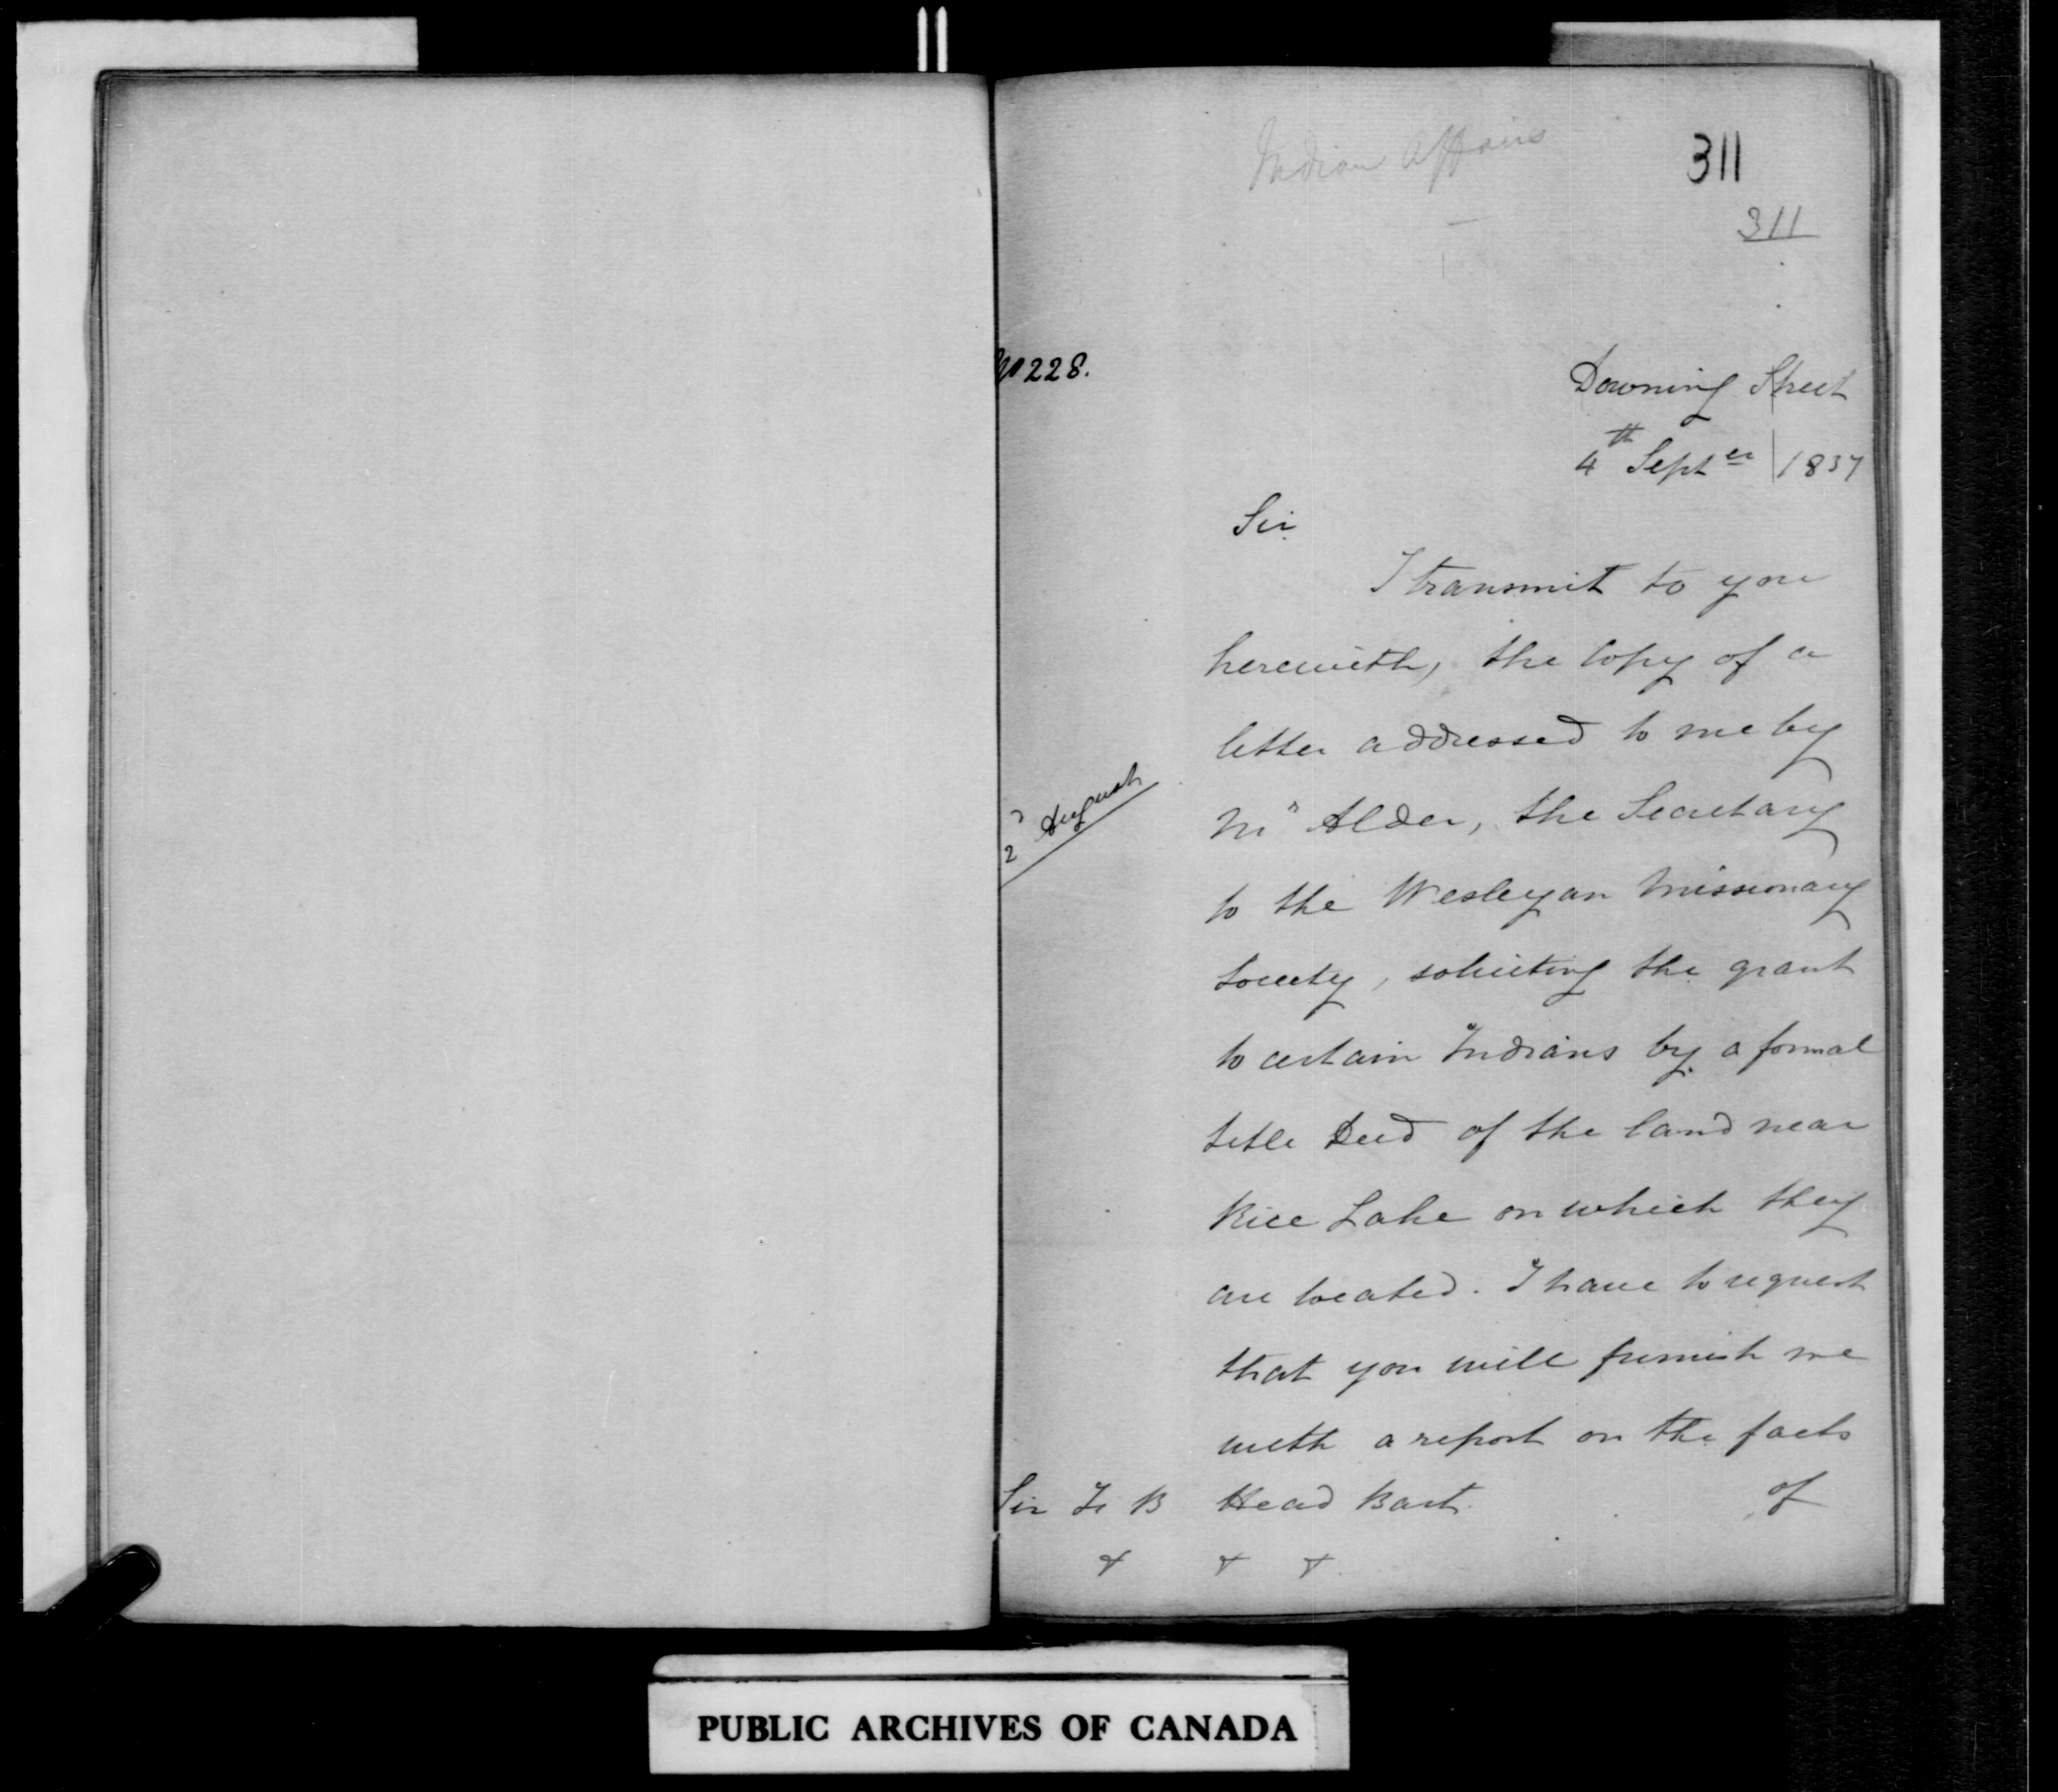 Indian Affairs
311
311
No 228.
Downing Street
4th Septer 1837
Sir
I transmit to you
herewith, the Copy of a
letter addressed to me by
2d August
Mr Alder, the Secretary
to the Wesleyan Missionary
Society, soliciting the grant
to certain Indians by a formal
title Deed of the land near
Rice Lake on which they
are located. I have to request
that you will furnish me
with a report on the facts
of
Sir F B Head Bart.
& & &.
PUBLIC ARCHIVES OF CANADA